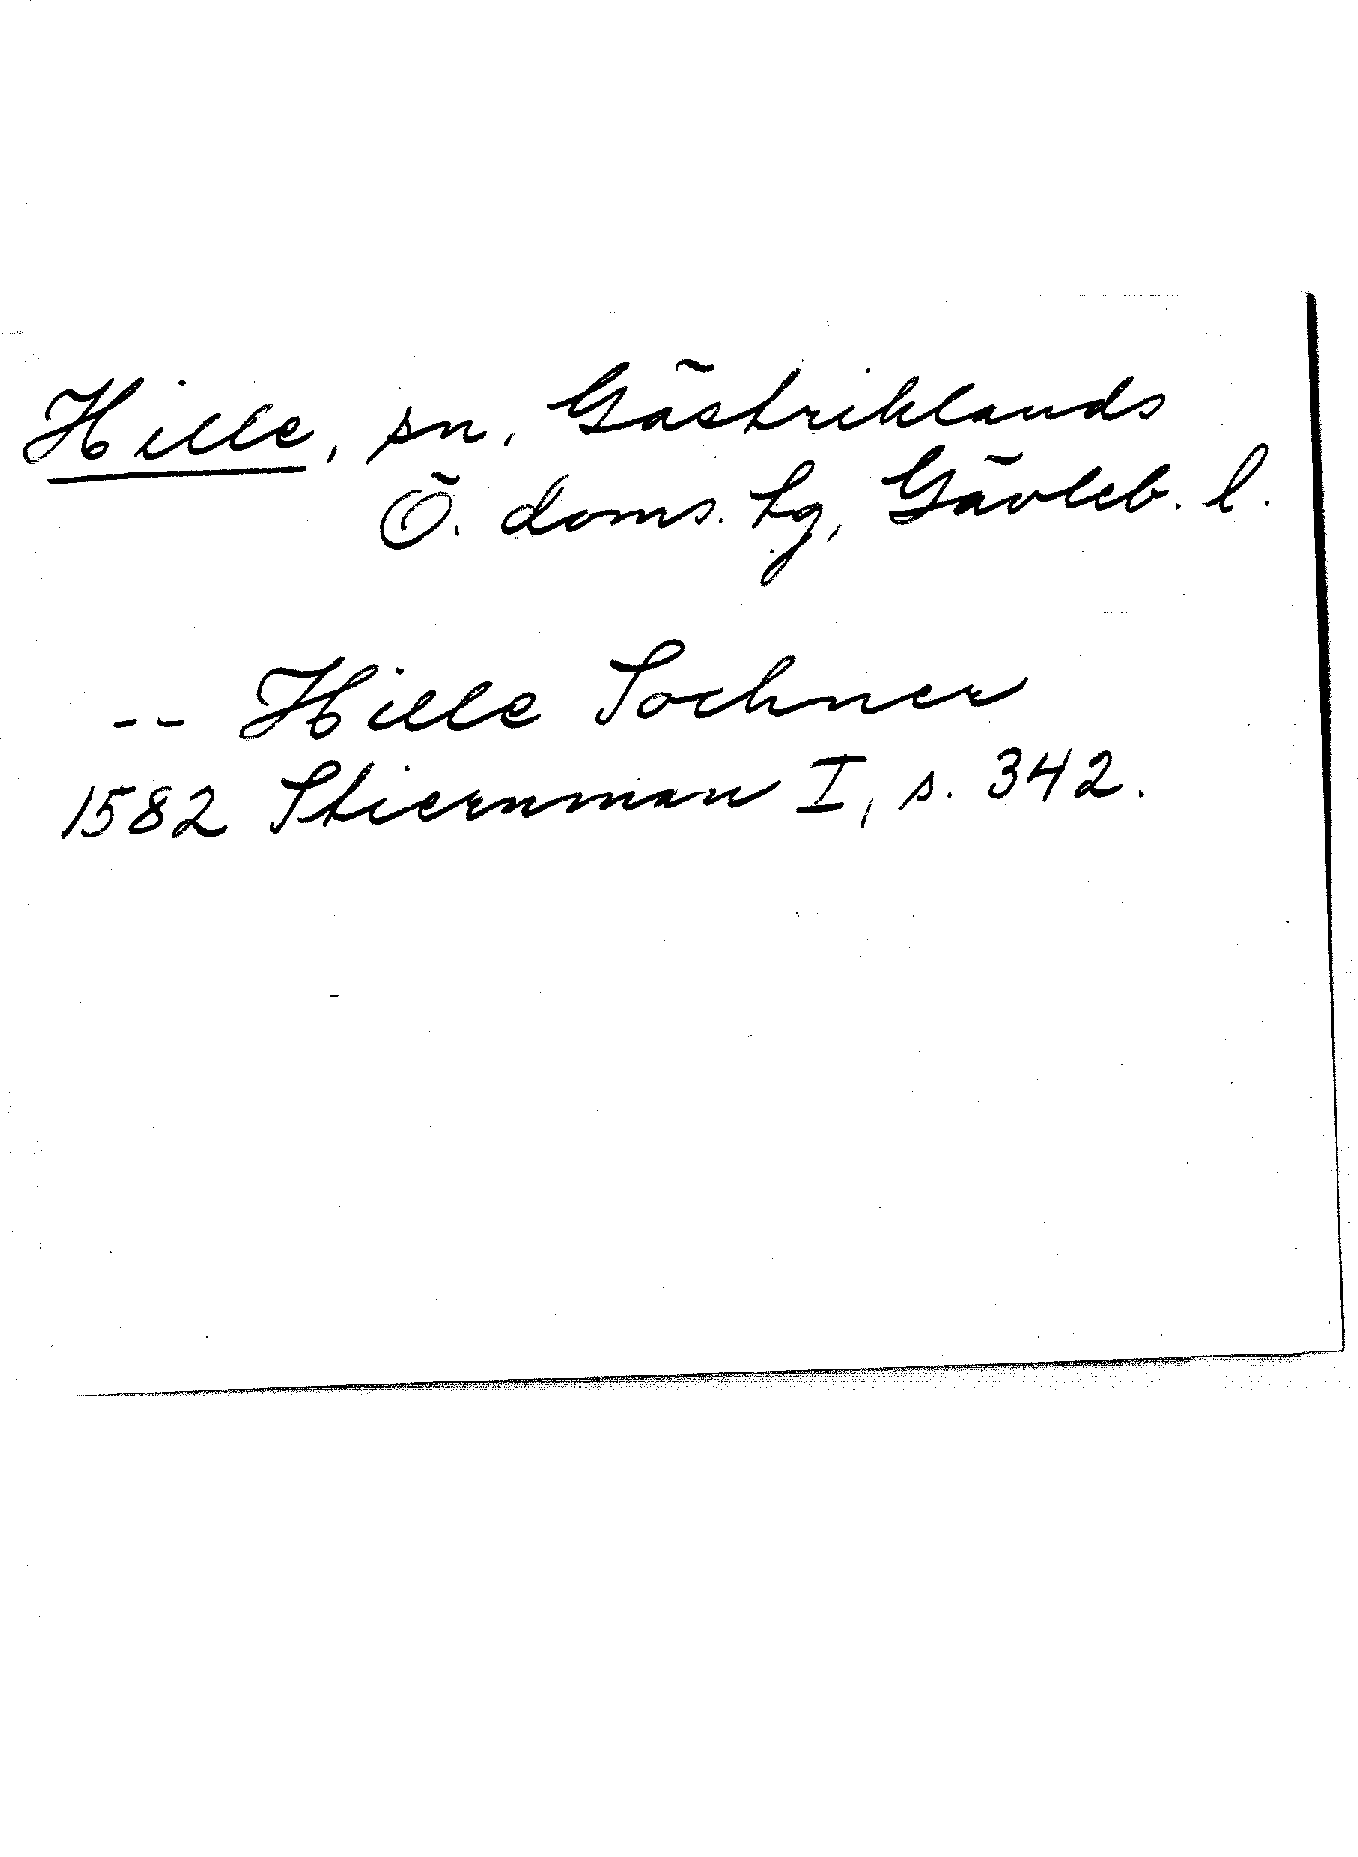 Hille, sn, Gästriklands
Ö. doms. lg, Gävleb. l.
-- Hille Sochner
1582 Stiernman I, s. 342.